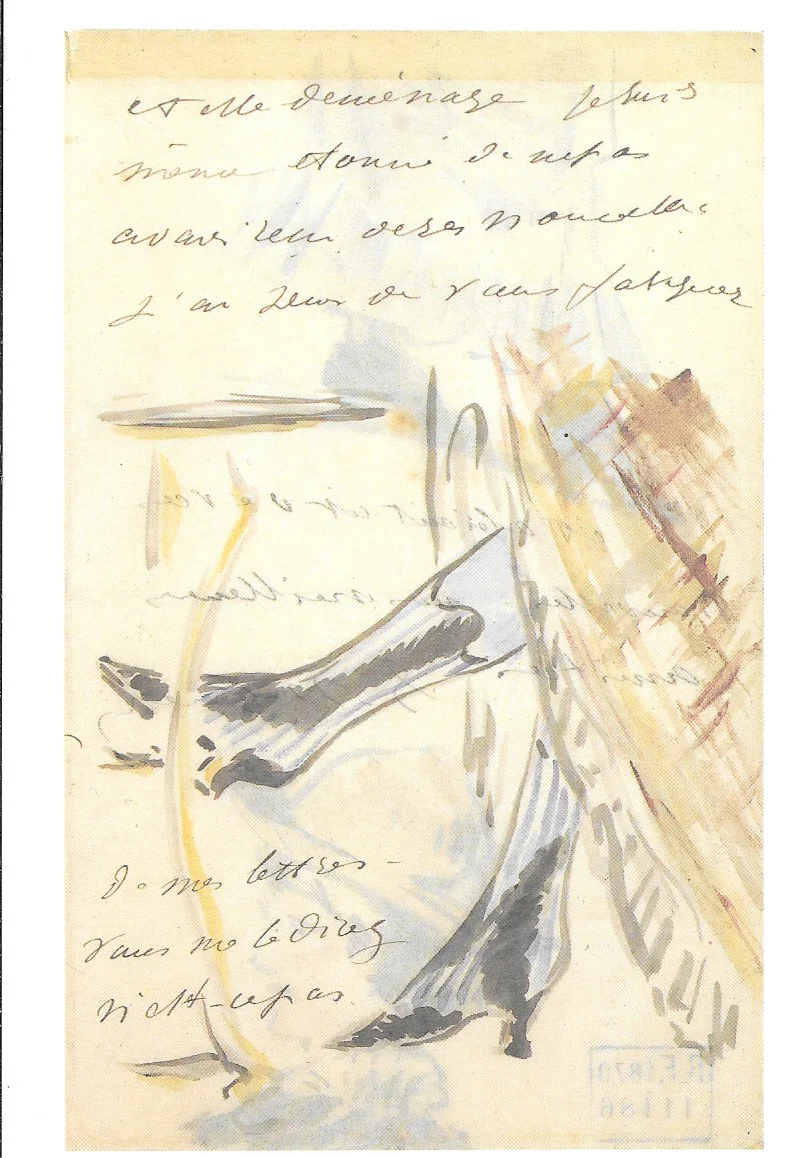 et elle déménage je suis
même étonné de ne pas
avoir reçu de ses nouvelles
j'ai peur de vous fatiguer
de mes lettres -
vous me le direz
n'est-ce pas
R.F. 1870
11186